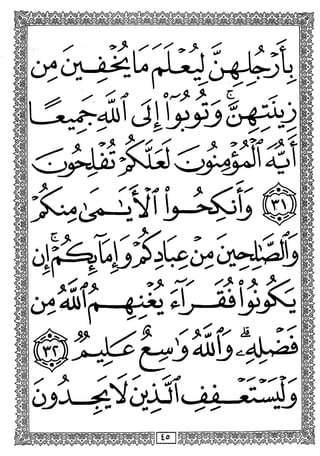 بِأَرْجُلِهِنَّ لِيُعْلَمَ مَا يُخْفِينَ مِن
زِينَتِهِنَّ ۚ وَتُوبُوٓا۟ إِلَى ٱللَّهِ جَمِيعًا
أَيُّهَ ٱلْمُؤْمِنُونَ لَعَلَّكُمْ تُفْلِحُونَ
﴿٣١﴾ وَأَنكِحُوا۟ ٱلْأَيَٰمَىٰ مِنكُمْ
وَٱلصَّٰلِحِينَ مِنْ عِبَادِكُمْ وَإِمَآئِكُمْ ۚ إِن
يَكُونُوا۟ فُقَرَآءَ يُغْنِهِمُ ٱللَّهُ مِن
فَضْلِهِۦ ۗ وَٱللَّهُ وَٰسِعٌ عَلِيمٌ ﴿٣٢﴾
وَلْيَسْتَعْفِفِ ٱلَّذِينَ لَا يَجِدُونَ
٤٥